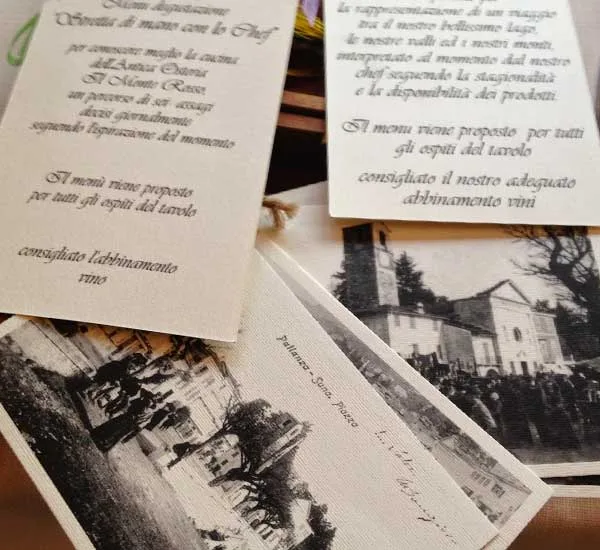 Menu degustazione
"Stretta di mano con lo Chef"
per conoscere meglio la cucina
dell'Antica Osteria
Il Monte Rosso,
un percorso di sei assagi
decisi giornalmente
seguendo l'ispirazione del momento
Il menù viene proposto
per tutti gli ospiti del tavolo
consigliato l'abbinamento
vino
la rappresentazione di un viaggio
tra il nostro bellissimo lago,
le nostre valli ed i nostri monti,
interpretato al momento dal nostro
chef seguendo la stagionalità
e la disponibilità dei prodotti.
Il menu viene proposto per tutti
gli ospiti del tavolo
consigliato il nostro adeguato
abbinamento vini
Pallanza - Suna, Piazza